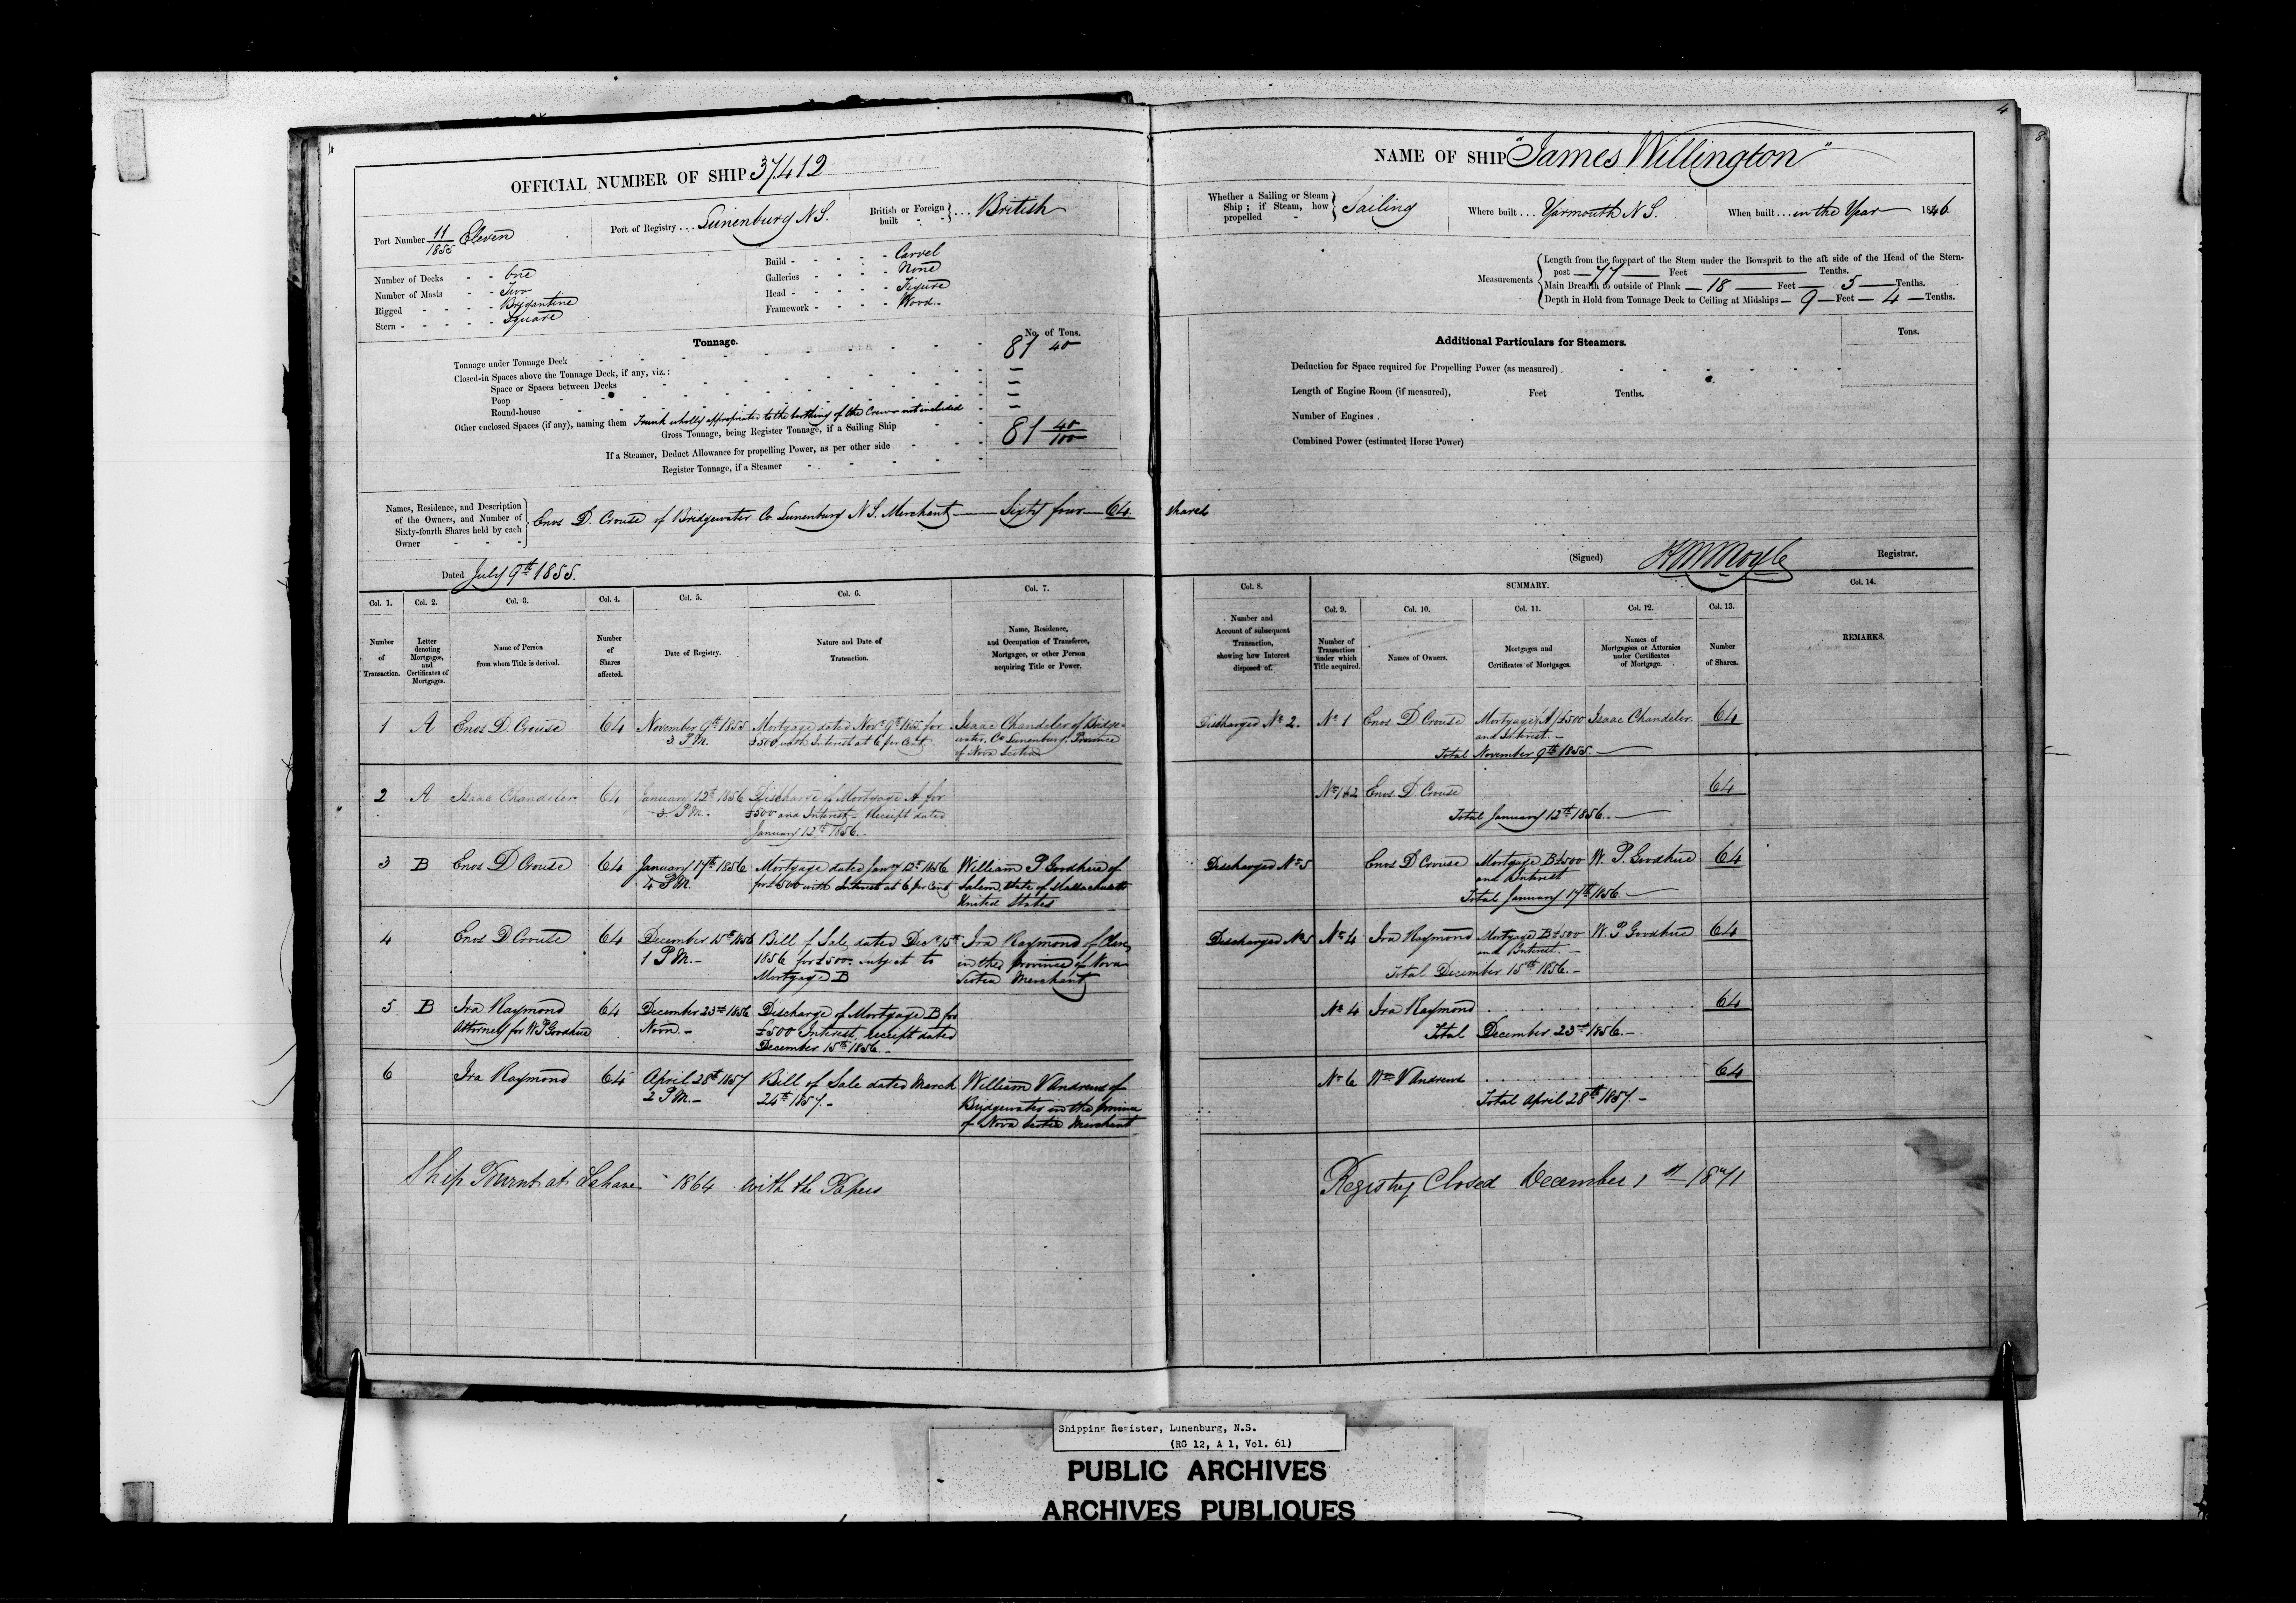 4
OFFICIAL NUMBER OF SHIP 37,412
Port Number 11/1855 Eleven
Port of Registry . . . Lunenburg N S.
British or Foreign built } . . . British
Number of Decks - - One
Number of Masts - - Two
Rigged - - - - Brigantine
Stern - - - - - Square
Build - - - - - Carvel
Galleries - - - - None
Head - - - - - Figure
Framework - - - - Wood
Tonnage.
No. of Tons.
Tonnage under Tonnage Deck 81 40
Closed-in Spaces above the Tonnage Deck, if any, viz.: —
Space or Spaces between Decks —
Poop —
Round-house —
Other enclosed Spaces (if any), naming them Trunk wholly appropriated to the berthing of the Crew not included
Gross Tonnage, being Register Tonnage, if a Sailing Ship 81 40/100
If a Steamer, Deduct Allowance for propelling Power, as per other side
Register Tonnage, if a Steamer
Names, Residence, and Description of the Owners, and Number of Sixty-fourth Shares held by each Owner
Enos D. Crouse of Bridgewater Co. Lunenburg N S. Merchant — Sixty four — 64 Shares
Dated July 9th 1855.
Col. 1. Number of Transaction.
Col. 2. Letter denoting Mortgages, and Certificates of Mortgages.
Col. 3. Name of Person from whom Title is derived.
Col. 4. Number of Shares affected.
Col. 5. Date of Registry.
Col. 6. Nature and Date of Transaction.
Col. 7. Name, Residence, and Occupation of Transferee, Mortgagee, or other Person acquiring Title or Power.
1 A Enos D Crouse 64 November 9th 1855 3 P M. Mortgage dated Novr 9th 1855 for £500 with Interest at 6 per Cent. Isaac Chandeler of Bridgewater, Co Lunenburg, Province of Nova Scotia
2 A Isaac Chandeler 64 January 12th 1856 3 P M. Discharge of Mortgage A for £500 and Interest – Receipt dated January 12th 1856.
3 B Enos D Crouse 64 January 17th 1856 4 P M. Mortgage dated Jany 12th 1856 for £500 with Interest at 6 per Cent William P Goodhue of Salem, State of Massachusetts United States
4 Enos D Crouse 64 December 15th 1856 1 P M. – Bill of Sale dated Decr 15th 1856 for £500 – subject to Mortgage B Ira Raymond of Clare, in the Province of Nova Scotia Merchant
5 B Ira Raymond Attorney for W P Goodhue 64 December 23rd 1856 Noon. – Discharge of Mortgage B for £500 Interest, receipt dated December 15th 1856. –
6 Ira Raymond 64 April 28th 1857 2 P M. – Bill of Sale dated March 24th 1857. – William V Andrews of Bridgewater in the province of Nova Scotia Merchant
Ship Burnt at Lahave 1864 with the Papers
4
8
NAME OF SHIP "James Willington"
Whether a Sailing or Steam Ship ; if Steam, how propelled } Sailing
Where built . . . Yarmouth N S.
When built . . . in the Year 1846
Measurements
Length from the forepart of the Stem under the Bowsprit to the aft side of the Head of the Stern-
post — 77 — Feet — Tenths.
Main Breadth to outside of Plank — 18 — Feet — 5 — Tenths.
Depth in Hold from Tonnage Deck to Ceiling at Midships — 9 — Feet — 4 — Tenths.
Additional Particulars for Steamers.
Tons.
Deduction for Space required for Propelling Power (as measured)
Length of Engine Room (if measured), Feet Tenths.
Number of Engines .
Combined Power (estimated Horse Power)
(Signed) Registrar.
SUMMARY.
Col. 8. Number and Account of subsequent Transaction, showing how Interest disposed of.
Col. 9. Number of Transaction under which Title acquired.
Col. 10. Names of Owners.
Col. 11. Mortgages and Certificates of Mortgages.
Col. 12. Names of Mortgagees or Attornies under Certificates of Mortgage.
Col. 13. Number of Shares.
Col. 14. REMARKS.
Discharged No 2. No 1 Enos D Crouse Mortgage (A) £500 and Interest. – Isaac Chandeler. 64
Total November 9th 1855. –
No 1 & 2 Enos D. Crouse 64
Total January 12th 1856. –
Discharged No 5 Enos D Crouse Mortgage B £500 and Interest W. P. Goodhue 64
Total January 17th 1856. –
Discharged No 5 No 4 Ira Raymond Mortgage B £500 and Interest. – W. P Goodhue 64
Total December 15th 1856. –
No 4 Ira Raymond 64
Total December 23rd 1856. –
No 6 Wm V Andrews 64
Total April 28th 1857. –
Registry Closed December 1st 1871
Shipping Register, Lunenburg, N.S.
(RG 12, A 1, Vol. 61)
PUBLIC ARCHIVES
ARCHIVES PUBLIQUES